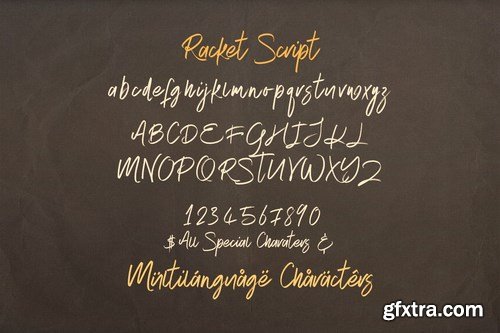 Racket Script
abcdefghijklmnopqrstuvwxyz
ABCDEFGHIJKL
MNOPQRSTUVWXYZ
1234567890
$ All Special Charaters &
Múltilánguågë Chåráctérs
gfxtra.com